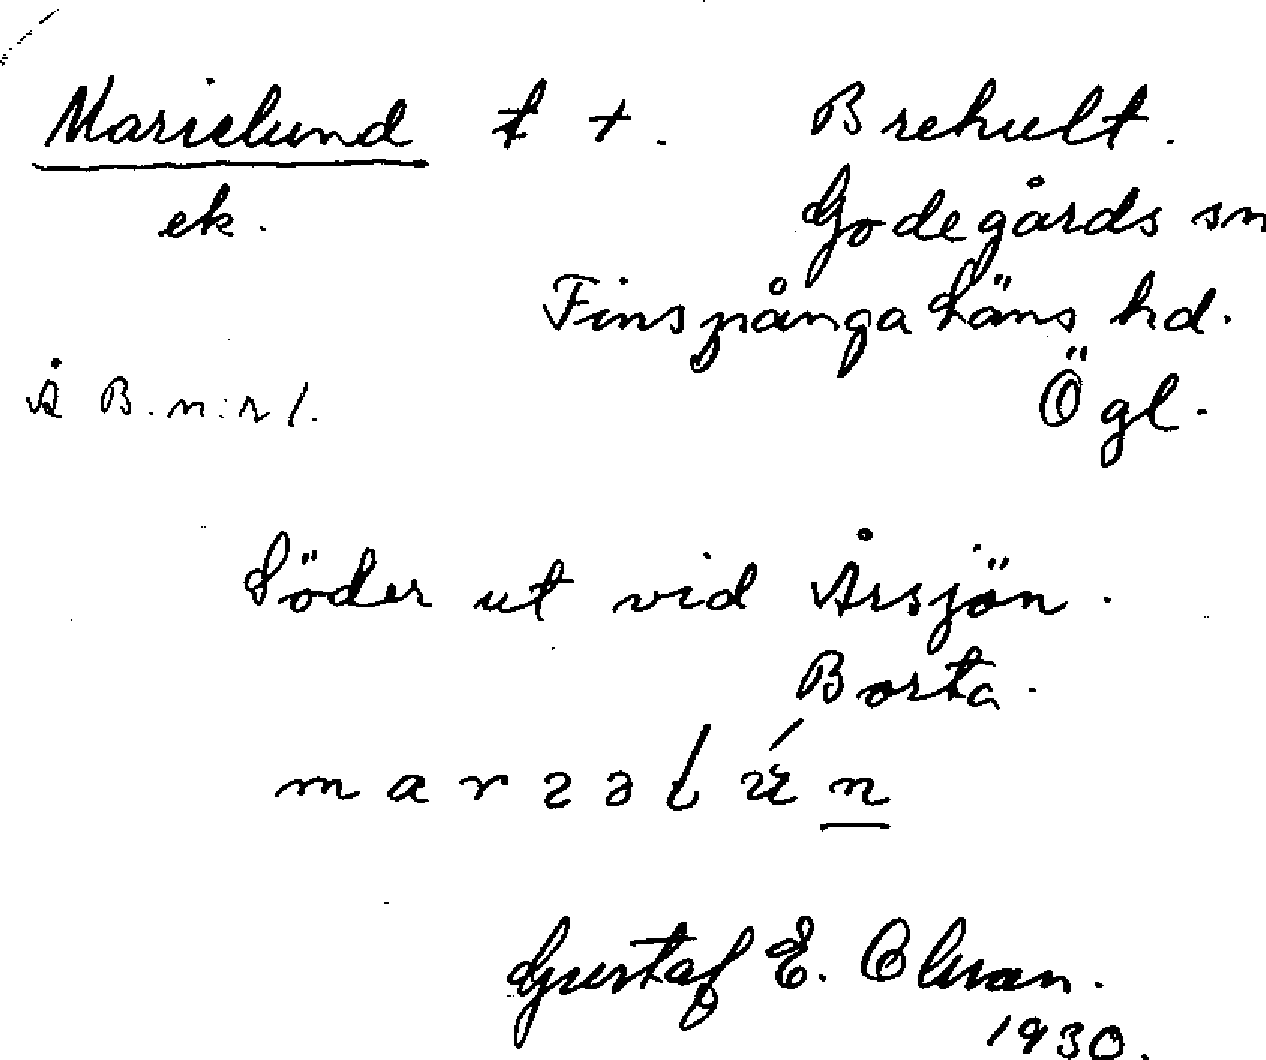 Marielund t +. Brehult.
ek. Godegårds sn
Finspånga läns hd.
Å B.n:r 1. Ögl.
Söder ut vid Årsjön.
Borta.
Gustaf E. Olman.
1930.